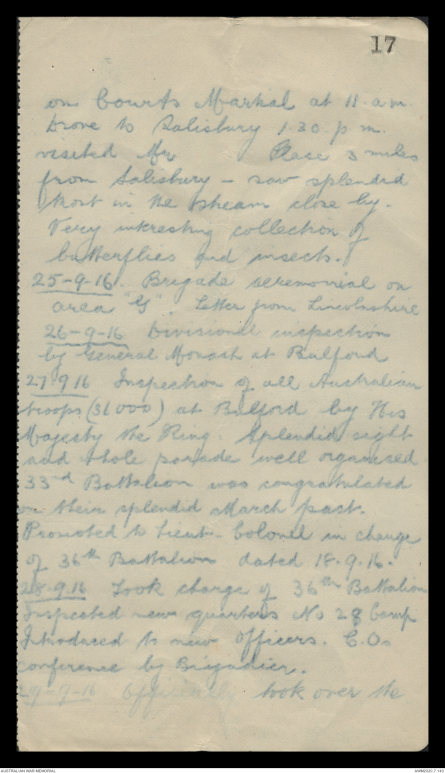 17
on Courts Martial at 11 a.m.
Drove to Salisbury 1.30 p m.
visited Mr Place 3 miles
from Salisbury - saw splendid
trout in the stream close by.
Very interesting collection of
butterflies and insects.
25-9-16. Brigade ceremonial on
area "G". Letter from Lincolnshire
26-9-16 Divisional inspection
by General Monash at Bulford
27.9.16 Inspection of all Australian
troops (31000) at Bulford by His
Majesty the King. Splendid sight
and whole parade well organised
33rd Battalion was congratulated
on their splendid March past.
Promoted to Lieut. Colonel in charge
of 36th Battalion dated 18.9.16.
28.9.16 Took charge of 36th Battalion
Inspected new quarters No 28 Camp
Introduced to new Officers. C.Os
conference by Brigadier.
29-9-16 Officially took over the
AUSTRALIAN WAR MEMORIAL